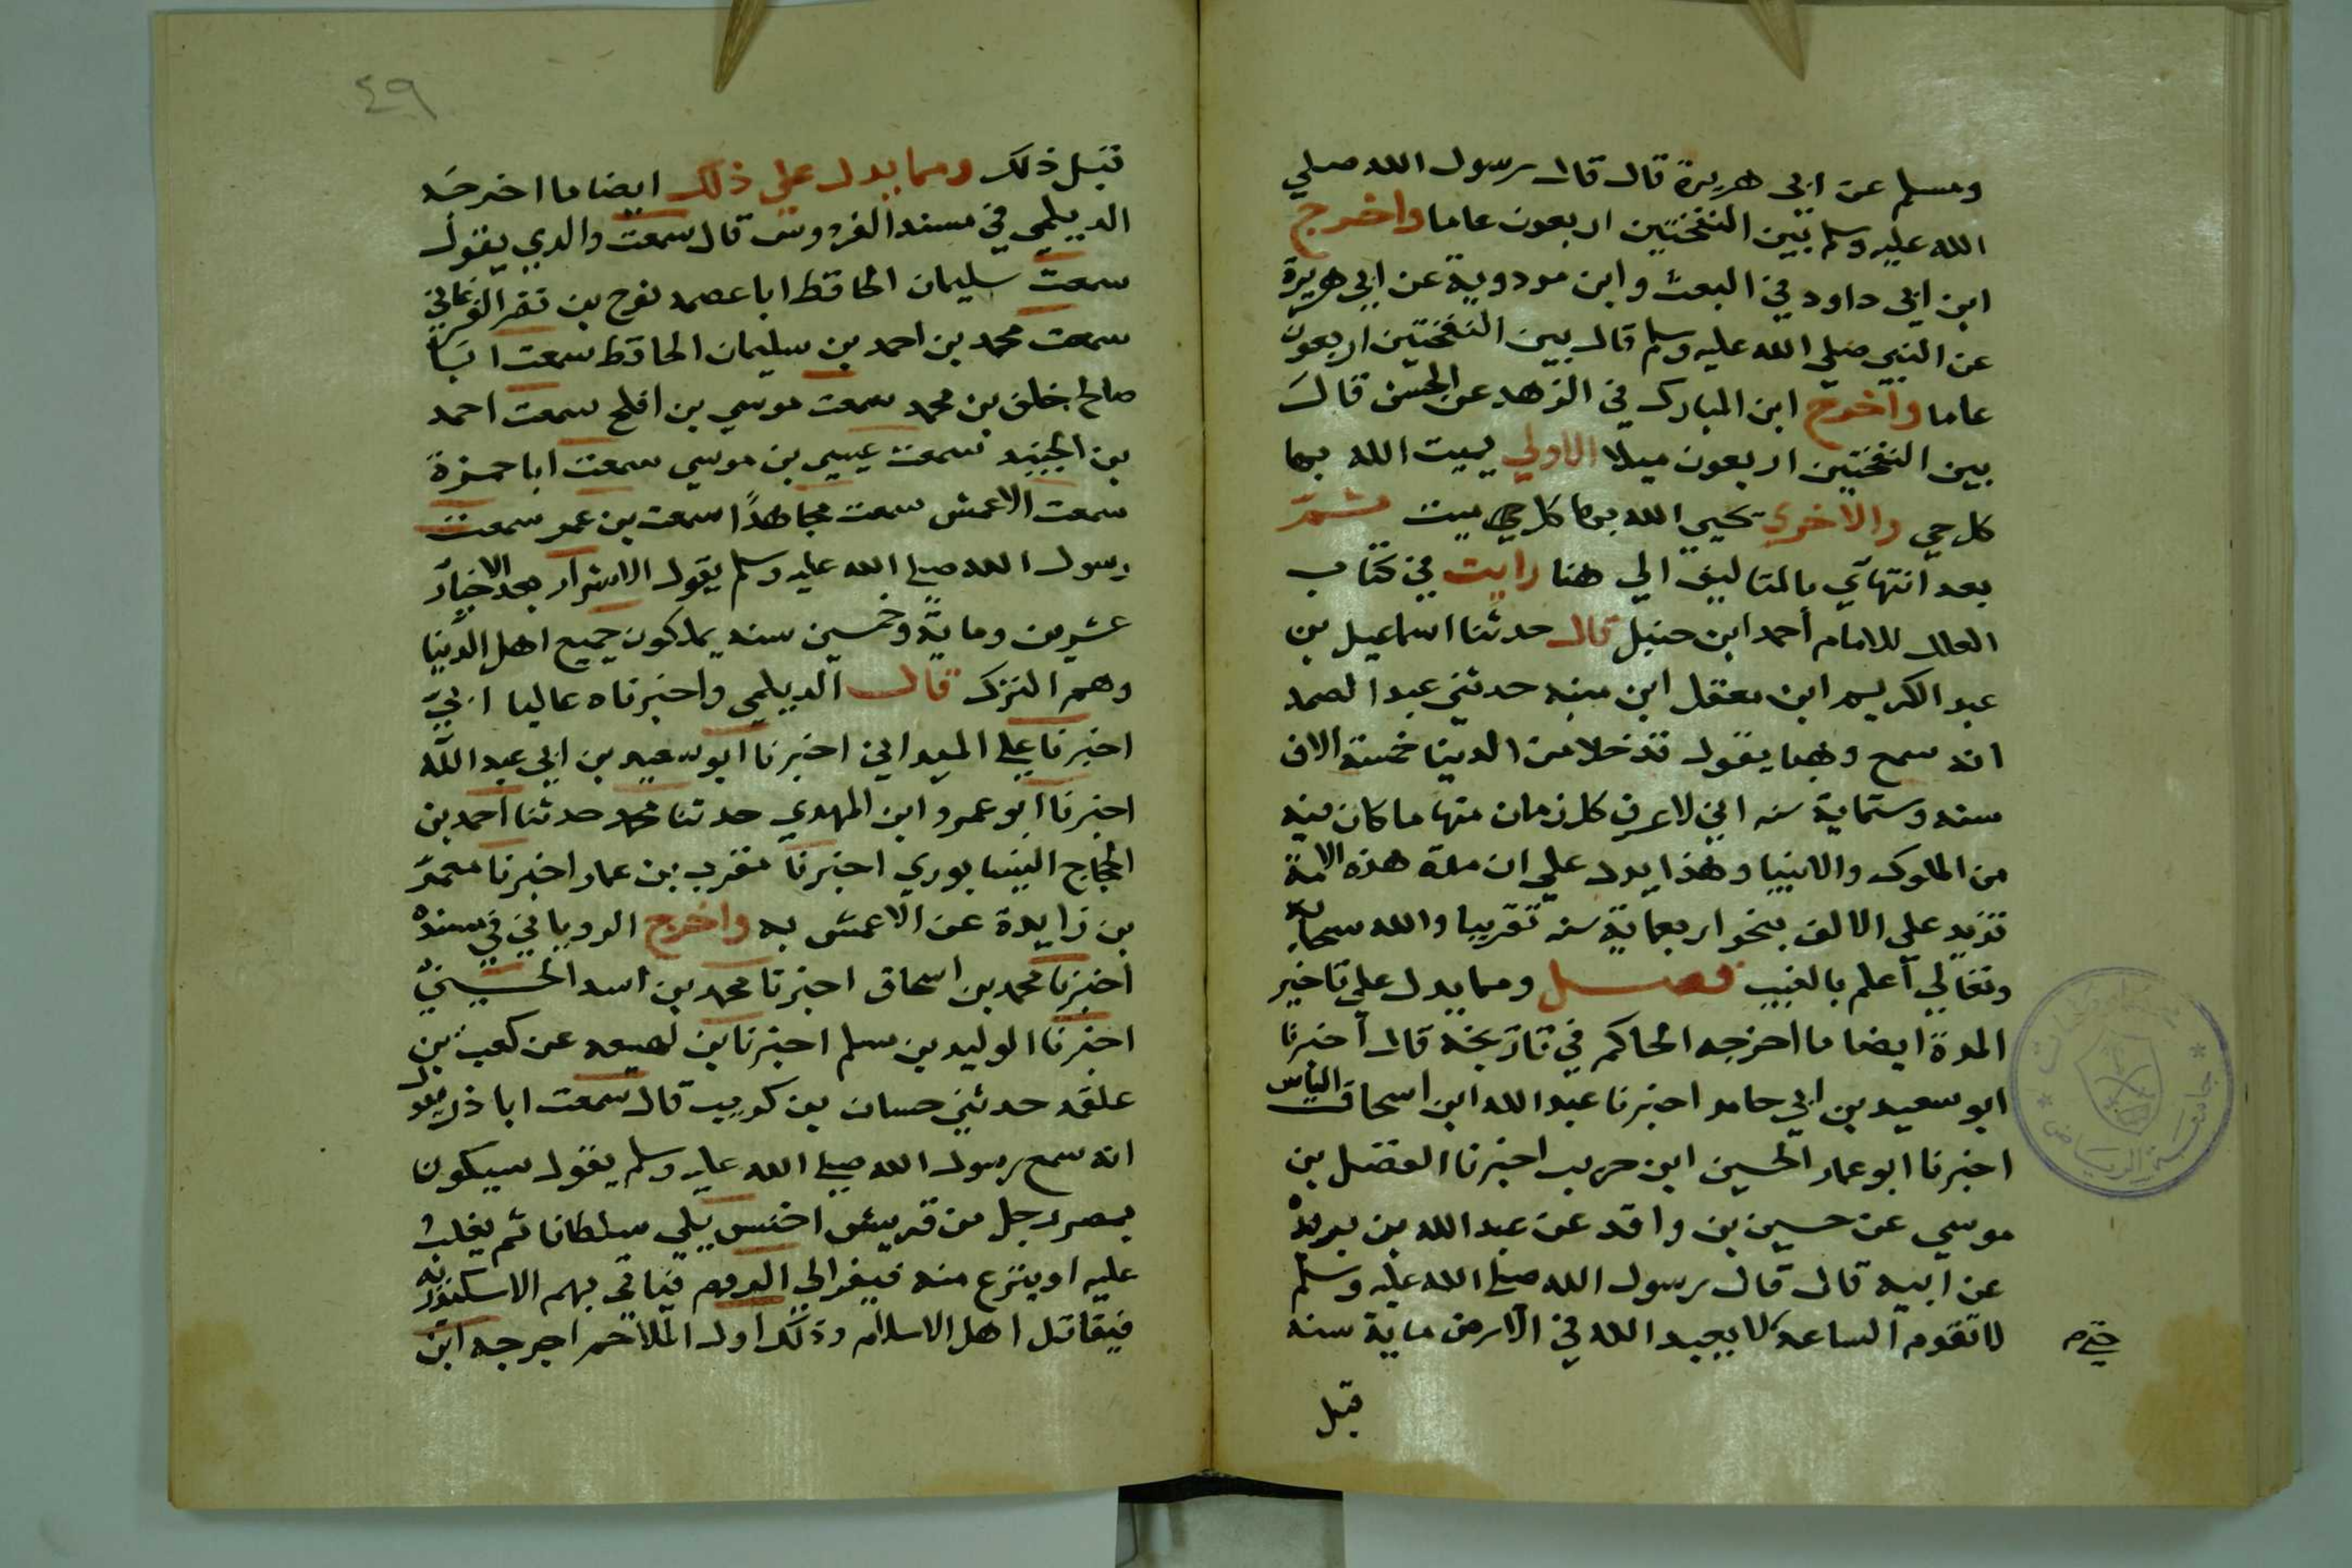 ومسلم عن ابي هريرة قال قال رسول الله صلي
الله عليه وسلم بين النفختين اربعون عاما واخرج
ابن ابي داود في البعث وابن مردوية عن ابي هريرة
عن النبي صلي الله عليه وسلم قال بين النفختين اربعون
عاما واخرج ابن المبارك في الزهد عن الحسن قال
بين النفختين اربعون ميلا الاولي يميت الله بها
كل حي والاخري يحيي الله بها كل حي ميت ثم
بعد انتهاي بالتاليف الي هنا رايت في كتاب
العلل للامام احمد ابن حنبل قال حدثنا اسماعيل بن
عبد الكريم ابن معقل ابن منبه حدثني عبد الصمد
انه سمع وهبا يقول قد خلا من الدنيا خمسة الاف
سنه وستماية سنه اني لاعرف كل زمان منها ما كان فيه
من الملوك والانبيا وهذا يدل علي ان مدة هذه الامة
تزيد علي الالف بنحو اربعماية سنه تقريبا والله سبحانه
وتعالي اعلم بالغيب فصل ومما يدل علي تاخير
المدة ايضا ما اخرجه الحاكم في تاريخه قال اخبرنا
ابو سعيد بن ابي حامد اخبرنا عبد الله ابن اسحاق الياس
اخبرنا ابو عمار الحسين ابن حريب اخبرنا الفضل بن
موسي عن حسين بن واقد عن عبد الله بن بريدة
عن ابيه قال قال رسول الله صلي الله عليه وسلم
لا تقوم الساعة لا يعبد الله في الارض ماية سنه
حتي م
قبل
٤٩
قبل ذلك ومما يدل علي ذلك ايضا ما اخرجه
الديلمي في مسند الفردوس قال سمعت والدي يقول
سمعت سليمان الحافظ ابا عصمه نوح بن نصر الفرغاني
سمعت محمد بن احمد بن سليمان الحافظ سمعت ابا
صالح خلف بن محمد سمعت موسي بن افلح سمعت احمد
بن الجنيد سمعت عيسي بن موسي سمعت ابا حمزة
سمعت الاعمش سمعت مجاهدا سمعت بن عمر سمعت
رسول الله صلي الله عليه وسلم يقول الاشرار بعد الاخيار
عشرين وماية وخمسين سنه يملكون جميع اهل الدنيا
وهم الترك قال الديلمي واخبرناه عاليا ابي
اخبرنا علي الميداني اخبرنا ابو سعيد بن ابي عبد الله
اخبرنا ابو عمرو ابن المهدي حدثنا محمد حدثنا احمد بن
الحجاج النيسابوري اخبرنا مقرب بن عمار اخبرنا معمر
بن زايدة عن الاعمش به واخرج الروياني في مسنده
اخبرنا محمد بن اسحاق اخبرنا محمد بن اسد الحسيني
اخبرنا الوليد بن مسلم اخبرنا بن لهيعه عن كعب بن
علقمه حدثني حسان بن كريب قال سمعت ابا ذر يقول
انه سمع رسول الله صلي الله عليه وسلم يقول سيكون
بمصر رجل من قريش اخنس يلي سلطانا ثم يغلب
عليه او ينزع منه فيفر الي الروم فياتي بهم الاسكندريه
فيقاتل اهل الاسلام وذلك اول الملاحم اخرجه ابن